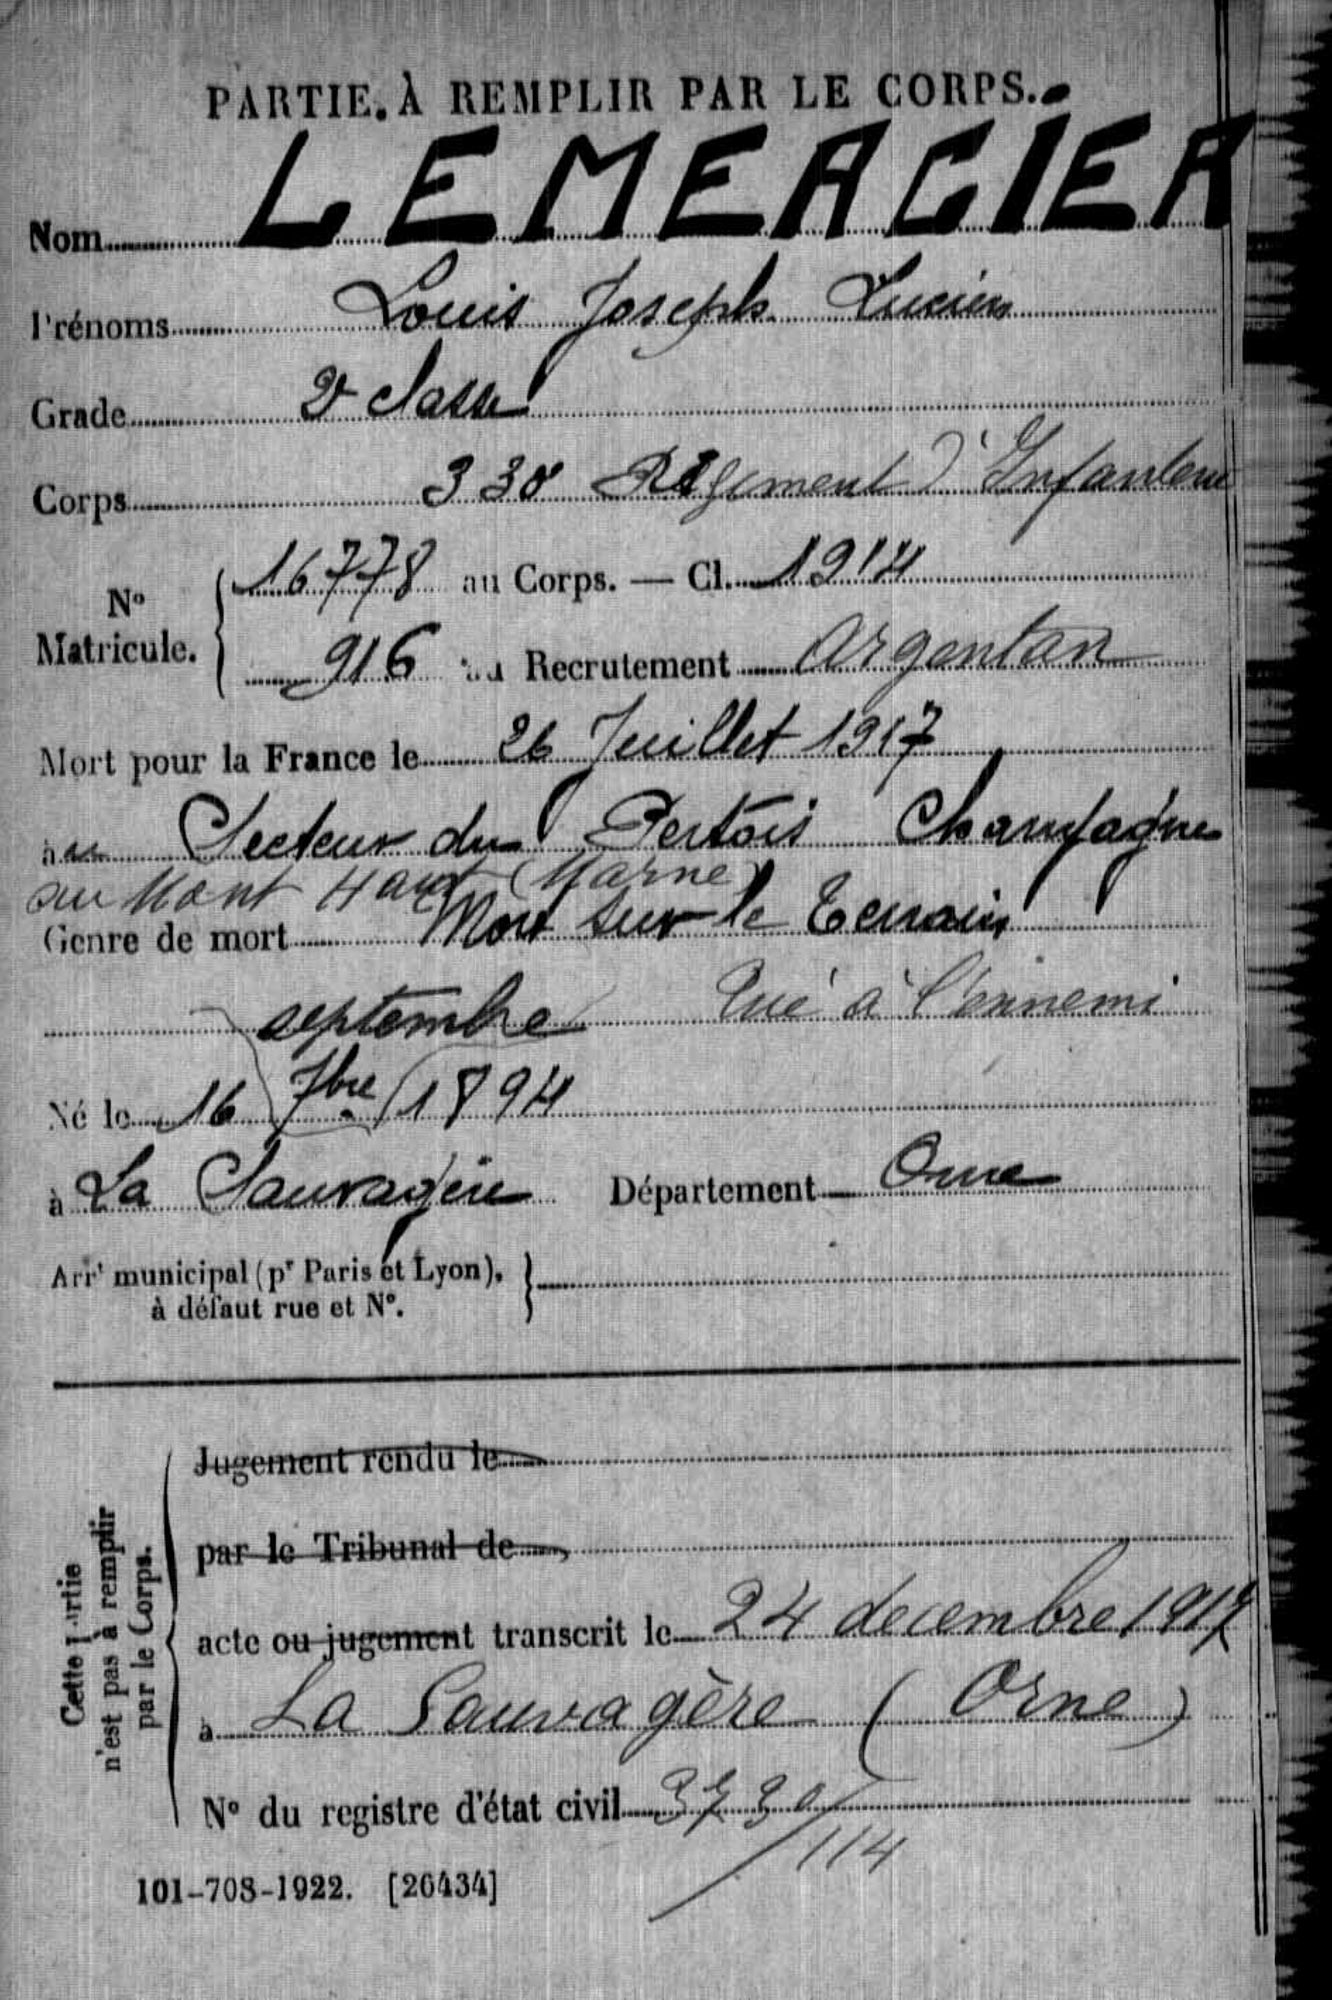 PARTIE. À REMPLIR PAR LE CORPS.
Nom LEMERCIER
Prénoms Louis Joseph Lucien
Grade 2e classe
Corps 330 Régiment d'Infanterie
N° Matricule.
16778 au Corps. — Cl. 1914
916 au Recrutement Argentan
Mort pour la France le 26 Juillet 1917
Secteur du Pertois Champagne
au Mont Haut (Marne)
Genre de mort Mort sur le Terrain
septembre Tué à l'ennemi
Né le 16 7bre 1894
à La Sauvagère Département Orne
Arrt municipal (pr Paris et Lyon),
à défaut rue et N°.
Cette Partie
n'est pas à remplir
par le Corps.
Jugement rendu le
par le Tribunal de
acte ou jugement transcrit le 24 decembre 1917
à La Sauvagère (Orne)
N° du registre d'état civil
114
101-708-1922. [26434]